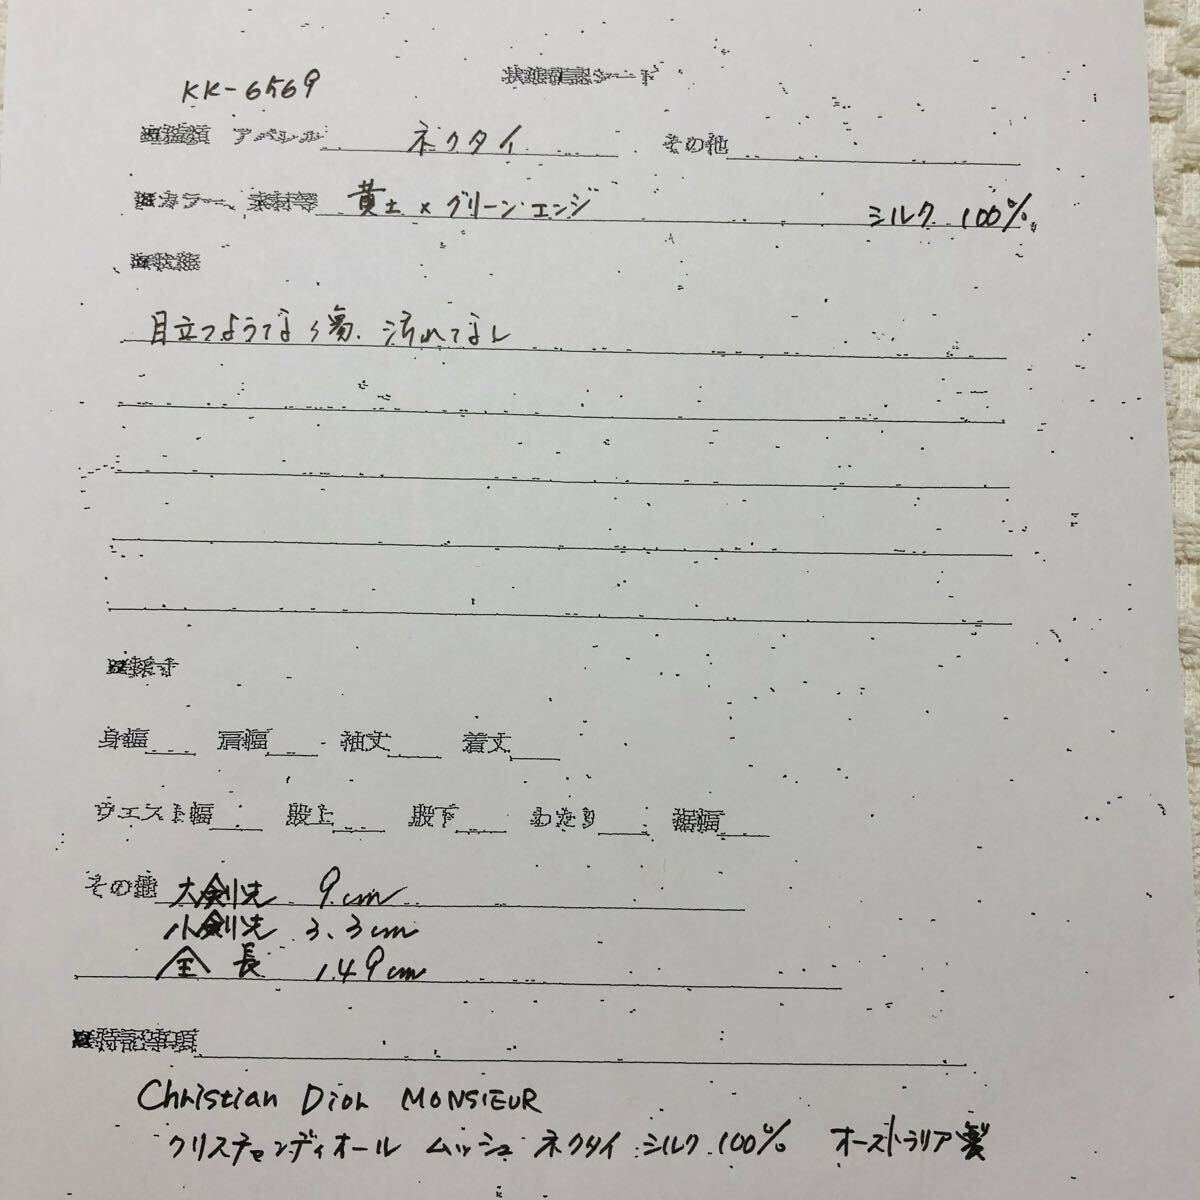 状態確認シート
KK-6569
■種類 アパレル ネクタイ その他
■カラー、素材等 黄土×グリーン・エンジ シルク 100%
■状態
目立つような傷、汚れてなし
■採寸
身幅 肩幅 袖丈 着丈
ウエスト幅 股上 股下 わたり 裾幅
その他 大剣先 9cm
小剣先 3.3cm
全長 149cm
■特記事項
Christian Dior MONSIEUR
クリスチャンディオール ムッシュ ネクタイ シルク 100% オーストラリア製